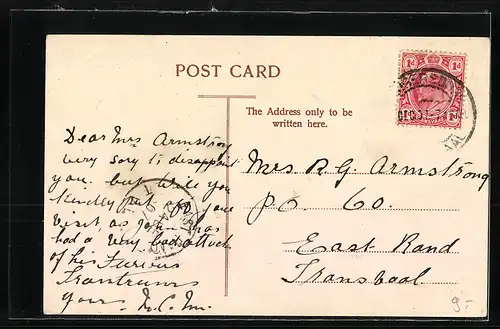 POST CARD
The Address only to be
written here.
1d 1d
Dear Mrs Armstrong
very sorry to disappoint
you. but will you
kindly put off your
visit, as John has
had a very bad attack
of his
yours
Mrs R. G. Armstrong
PO. 60.
East Rand
Transvaal
9.-